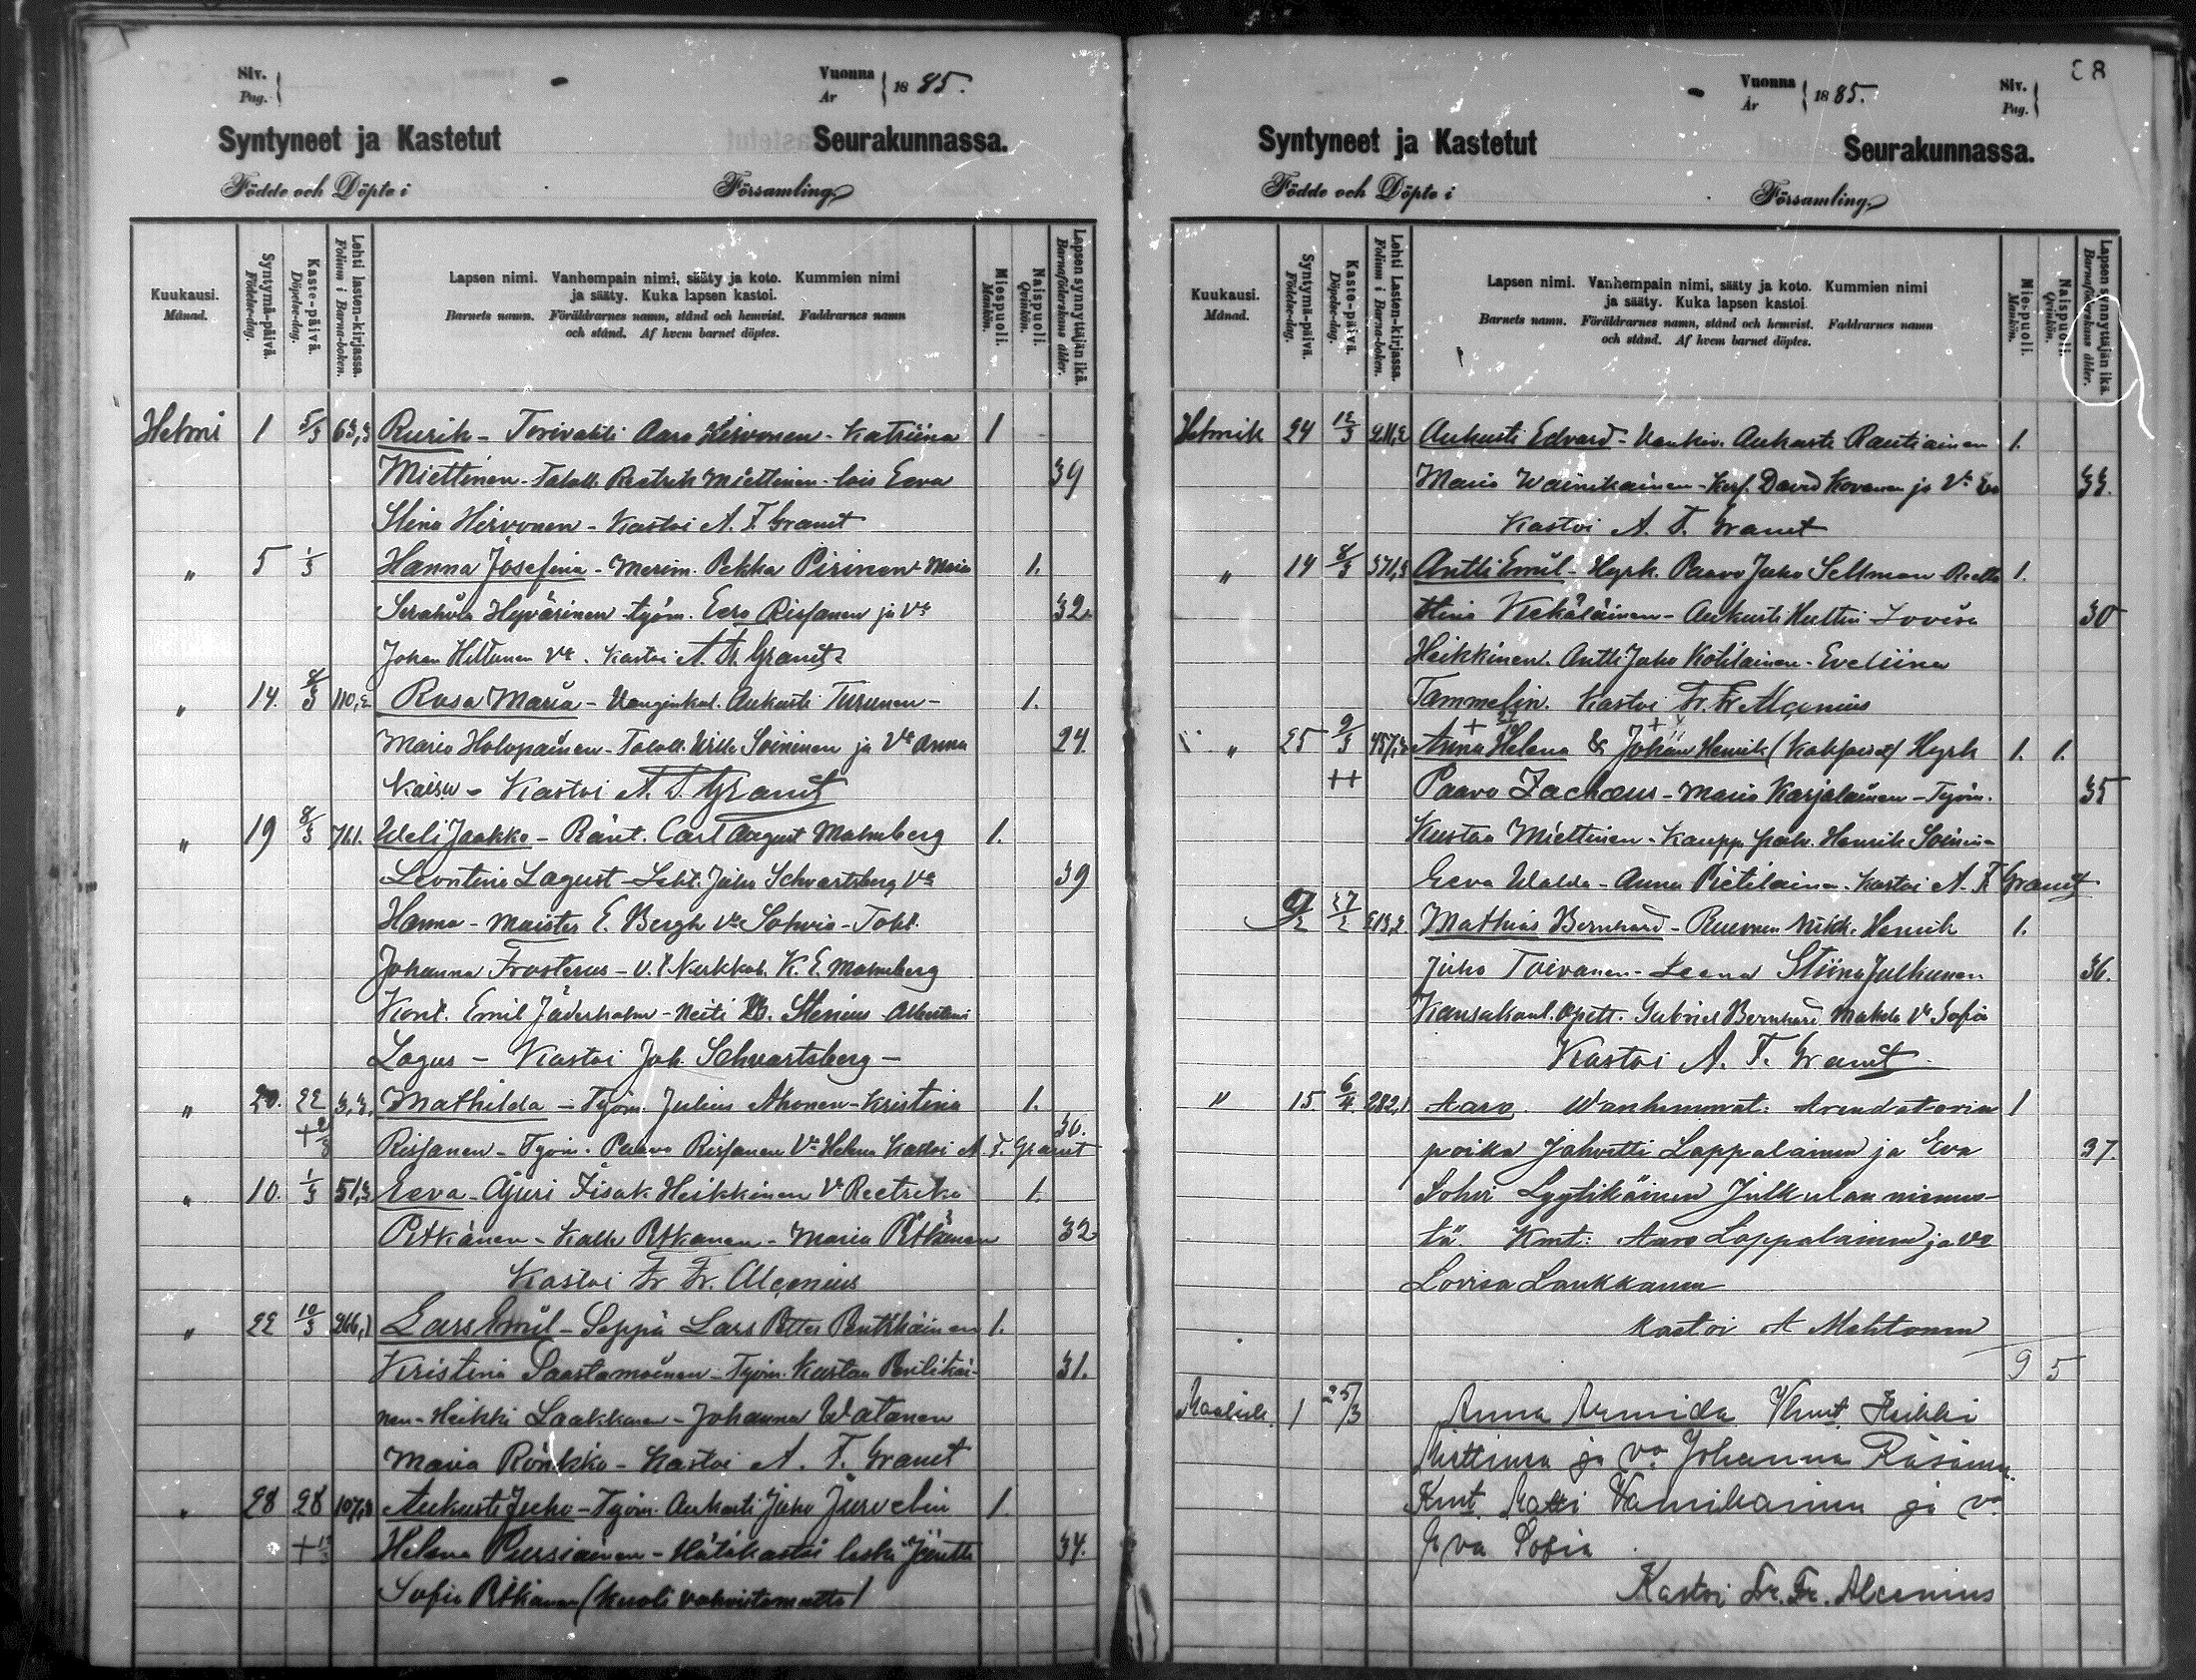 Siv. Pag. Vuonna År 1885.
Syntyneet ja Kastetut Seurakunnassa.
Födde och Döpte i Församling.
Kuukausi. Månad.
Syntymä-päivä. Födelse-dag.
Kaste-päivä. Döpelse-dag.
Lehti lasten-kirjassa. Folium i Barna-boken.
Lapsen nimi. Vanhempain nimi, sääty ja koto. Kummien nimi
ja sääty. Kuka lapsen kastoi.
Barnets namn. Föräldrarnes namn, stånd och hemvist. Faddrarnes namn
och stånd. Af hvem barnet döptes.
Miespuoli. Mankön.
Naispuoli. Qvinkön.
Lapsen synnyttäjän ikä. Barnaföderskans ålder.
Helmi 1 5/3 63,3 Rurik - Torivahti Aaro Hirvonen - Katriina 1
Miettinen - Talol. Reetrik Miettinen - lois Eeva 39
Stina Hirvonen - Kastoi A. F. Granit
" 5 1/3 Hanna Josefina - Merim. Pekka Pirinen - Maria 1.
Serahvia Hyvärinen - työm. Eero Rissanen ja Va 32
Johan Hiltunen Va. Kastoi A. F. Granit
" 14. 8/3 110,2 Rosa Maria - Vanginkul. Aukusti Turunen - 1.
Maria Holopainen - Talol. Wille Soininen ja Va Anna 24.
Kaisa - Kastoi A. F. Granit
" 19 8/3 761. Weli Jaakko - Ränt. Carl August Malmberg 1.
Leontina Lagust - Leht. Juho Schvartsberg Va 39
Hanna - Maister E. Bergh Va Sohvia - Toht.
Johanna Frosterus - V. t. Nurkkat. K. E. Malmberg
Kont. Emil Jäderholm - Neiti B. Stenius Albertina
Lagus - Kastoi Joh. Schvartsberg -
" 20. 22 3,3. Mathilda - Työm. Julius Ahonen - Kristina 1.
+ 2/3 Rissanen - Työm. Paavo Rissanen Va Helena Kastoi A. F. Granit 30.
" 10. 1/3 51,3 Eeva - Ajuri Iisak Heikkinen Va Reetrika 1.
Pitkänen - Kalle Pitkänen - Maria Pitkänen 32
Kastoi Fr. Fr. Alcenius
" 22 10/3 266,1 Lars Emil - Seppä Lars Petter Pentikäinen 1.
Kristina Saastamoinen - Työm. Kustaa Pentikäi- 31.
nen - Heikki Laakkonen - Johanna Watanen
Maria Rönkkö - Kastoi A. F. Granit
" 28 28 107,3 Aukusti Juho - Työm. Aukusti Juho Jurvelin 1.
+ Helena Pursiainen - Hätäkastoi leski 34.
Sofia Pitkänen (Kuoli vahvistamatta)
Vuonna År 1885. Siv. Pag. 38
Syntyneet ja Kastetut Seurakunnassa.
Födde och Döpte i Församling.
Kuukausi. Månad.
Syntymä-päivä. Födelse-dag.
Kaste-päivä. Döpelse-dag.
Lehti Lasten-kirjassa. Folium i Barna-boken.
Lapsen nimi. Vanhempain nimi, sääty ja koto. Kummien nimi
ja sääty. Kuka lapsen kastoi.
Barnets namn. Föräldrarnes namn, stånd och hemvist. Faddrarnes namn
och stånd. Af hvem barnet döptes.
Miespuoli. Mankön.
Naispuoli. Qvinkön.
Lapsen synnyttäjän ikä. Barnaföderskans ålder.
Helmik 24 12/3 211,2 Aukusti Edvard - Aukusti Rautiainen 1.
Maria Wäinikainen - David Kovanen ja Va Eva 33.
Kastoi A. F. Granit
" 14 8/3 371,3 Antti Emil - Hyrk. Paavo Juho Sellman Reetta 1.
Stina Kekäläinen - Aukusti Hultin - Lovisa 30
Heikkinen. Antti Juho Kotilainen - Eveliina
Tammelin. Kastoi Fr. Fr. Alcenius
" 25 9/3 457,3 Anna Helena & Johan Henrik (Kaksoiset) Hyrk 1. 1.
++ Paavo Zachæus - Maria Karjalainen - Työm. 35
Kustaa Miettinen - Kaupp. palv. Henrik Soinin-
Eeva Walda - Anna Pietiläinen. Kastoi A. F. Granit
27/2 213,2 Mathias Bernhard - Nikk. Henrik 1.
Juho Toivanen - Leena Stiina Julkunen 36.
Kansakoul. Opett. Gabriel Bernhard Makela Va Sofia
Kastoi A. F. Granit
" 15. 6/4. 282,1 Aaro. Wanhemmat: Arendatorin 1
poika Jahvetti Lappalainen ja Eva 37.
Sohvi Lyytikäinen Julkulan niemes-
tä. Kmt: Aaro Lappalainen ja Va
Lovisa Laukkanen
Kastoi A Mahtonen
9 5
Maalisk. 1 25/3 Anna Armida Heikki
Miettinen ja Va Johanna Räsänen.
Kmt. Matti Wainikainen ja Va
Eva Sofia
Kastoi Fr. Fr. Alcenius